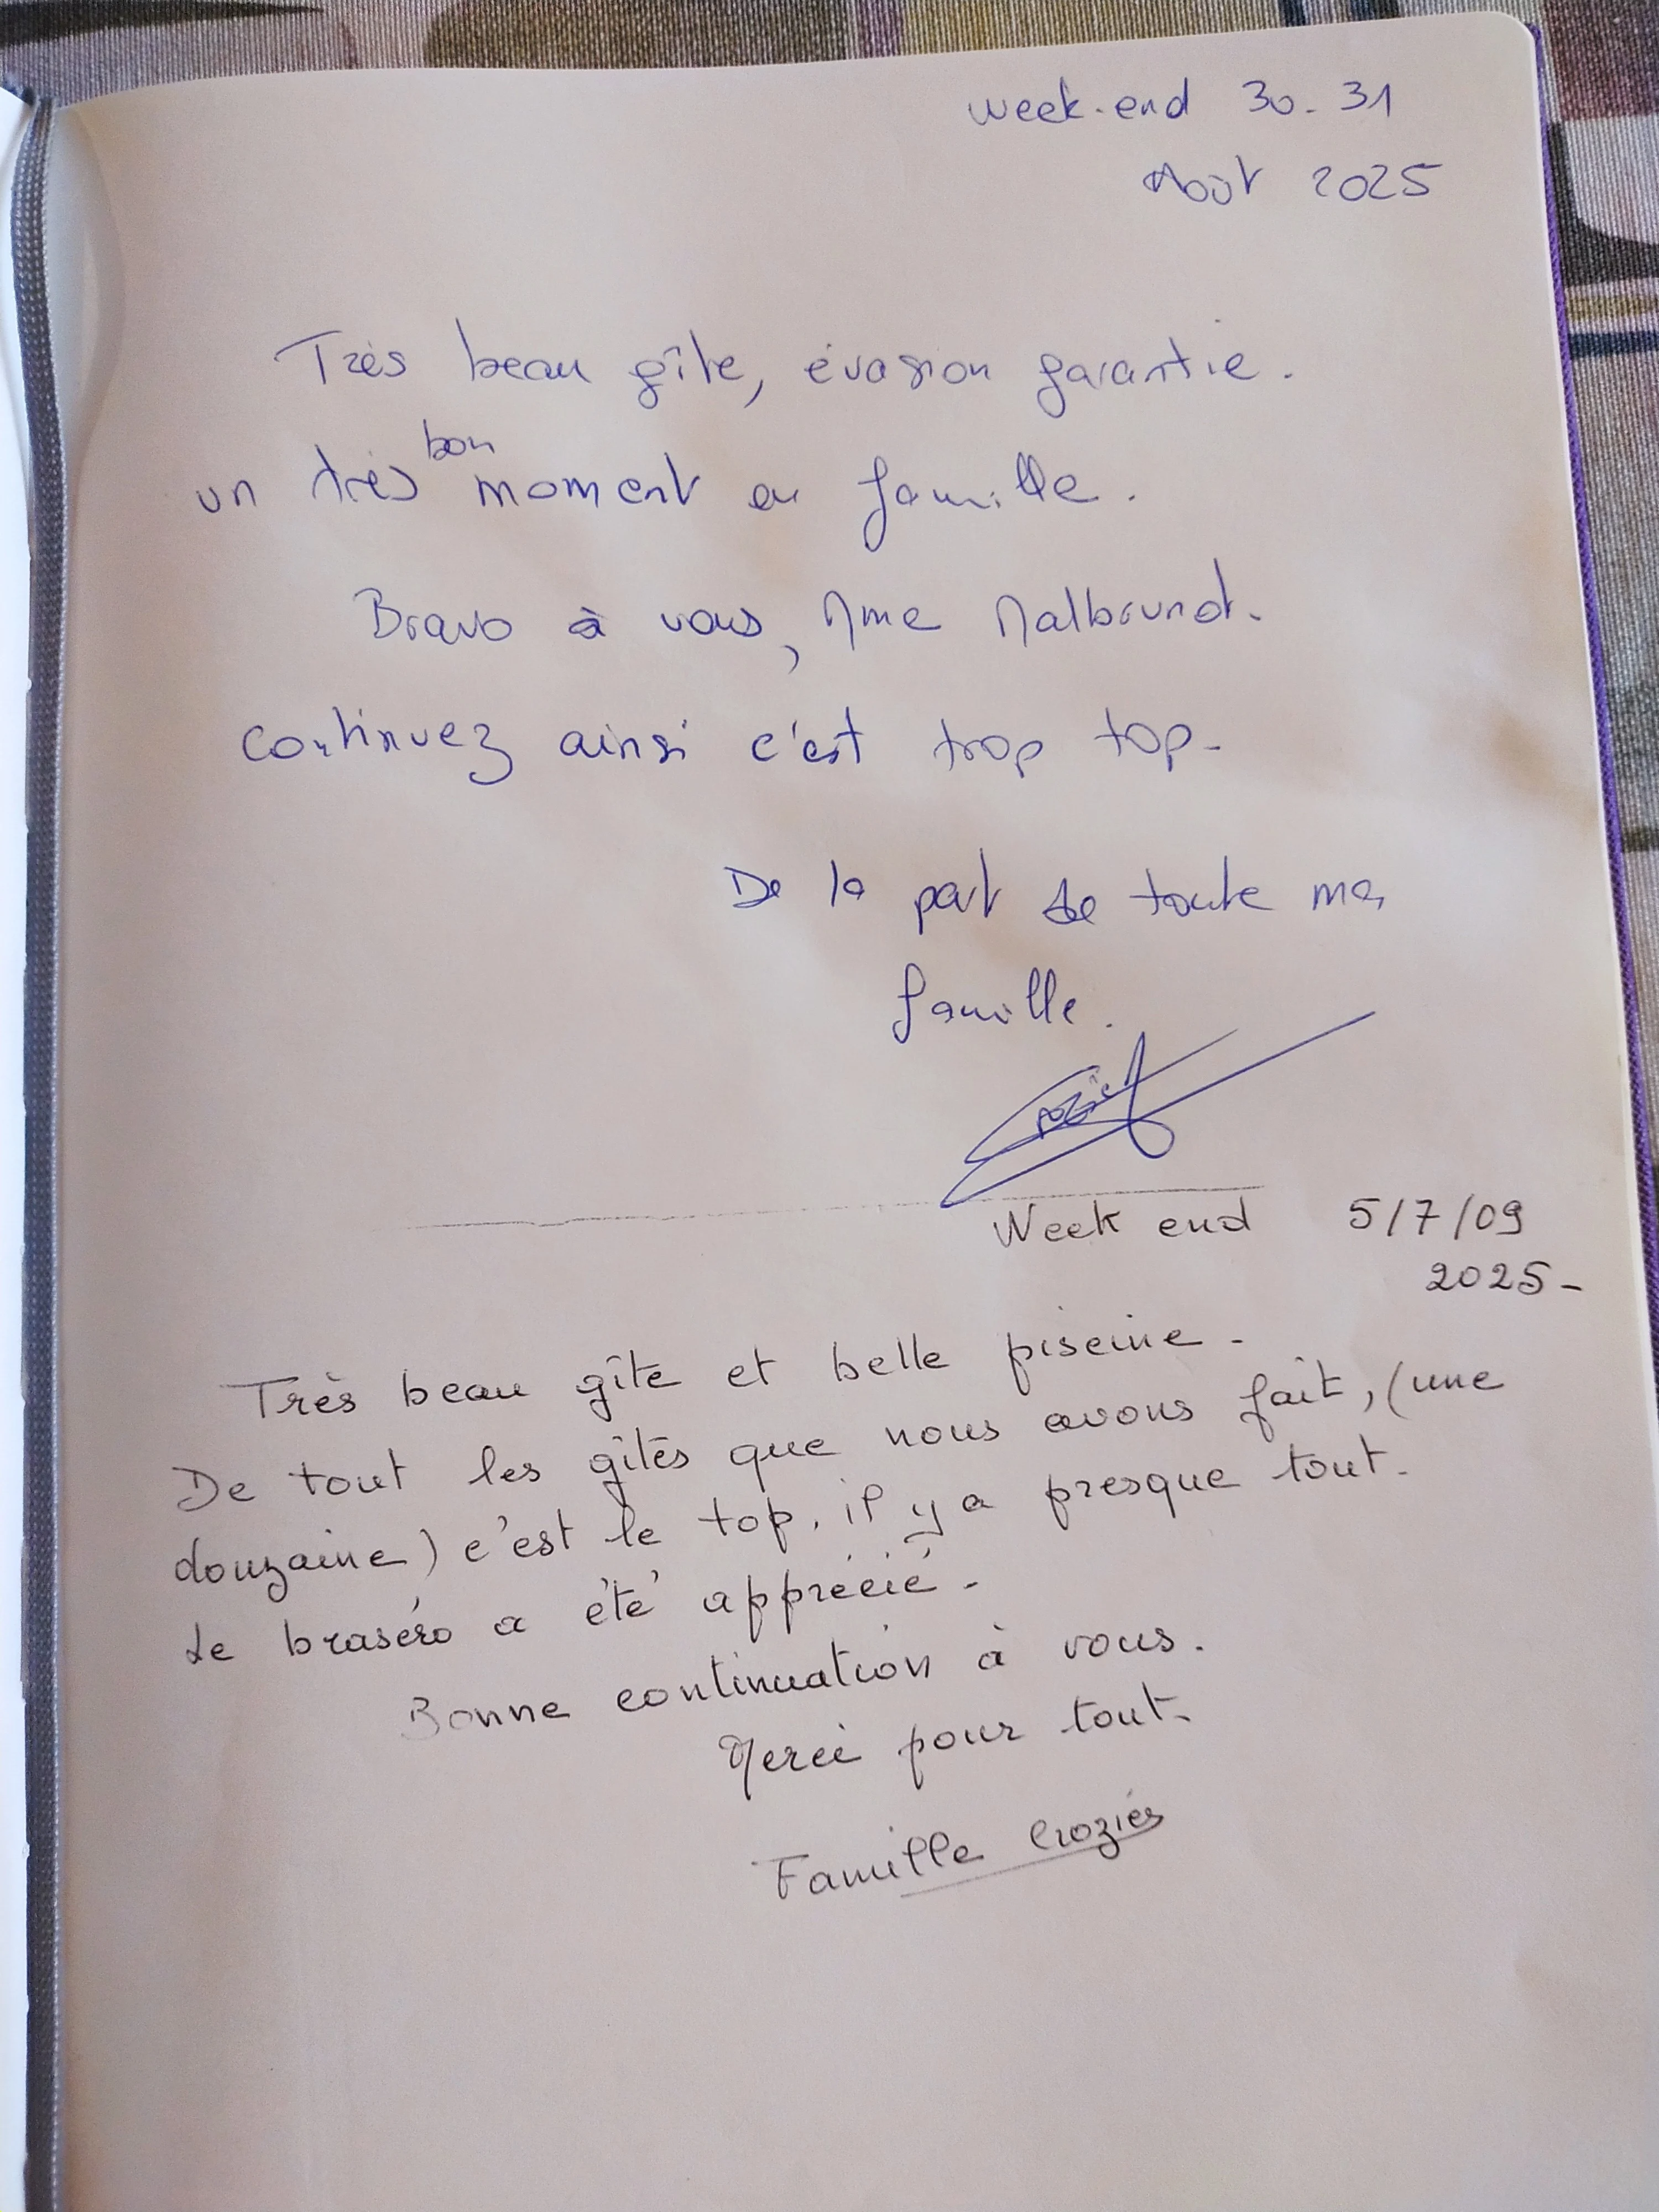 week-end 30-31
Août 2025
Très beau gîte, évasion garantie.
un très bon moment en famille.
Bravo à vous, Mme Malbrunot.
continuez ainsi c'est trop top-
De la part de toute ma
famille.
Week end 5/7/09
2025-
Très beau gîte et belle piscine-
De tout les gîtes que nous avons fait, (une
douzaine) c'est le top. il y a presque tout.
Le braséro a été apprécié-
Bonne continuation à vous.
Merci pour tout-
Famille